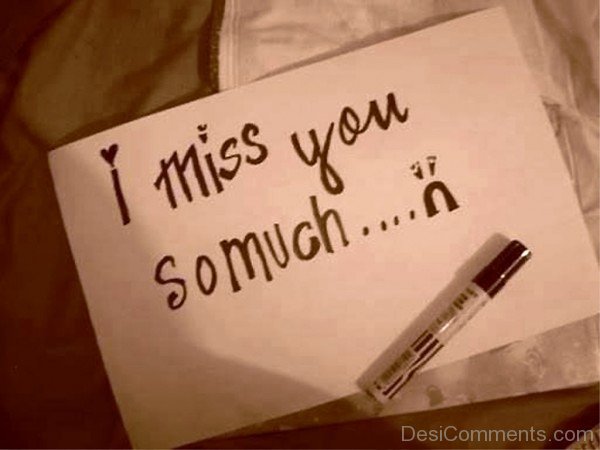 i miss you
somuch....
DesiComments.com